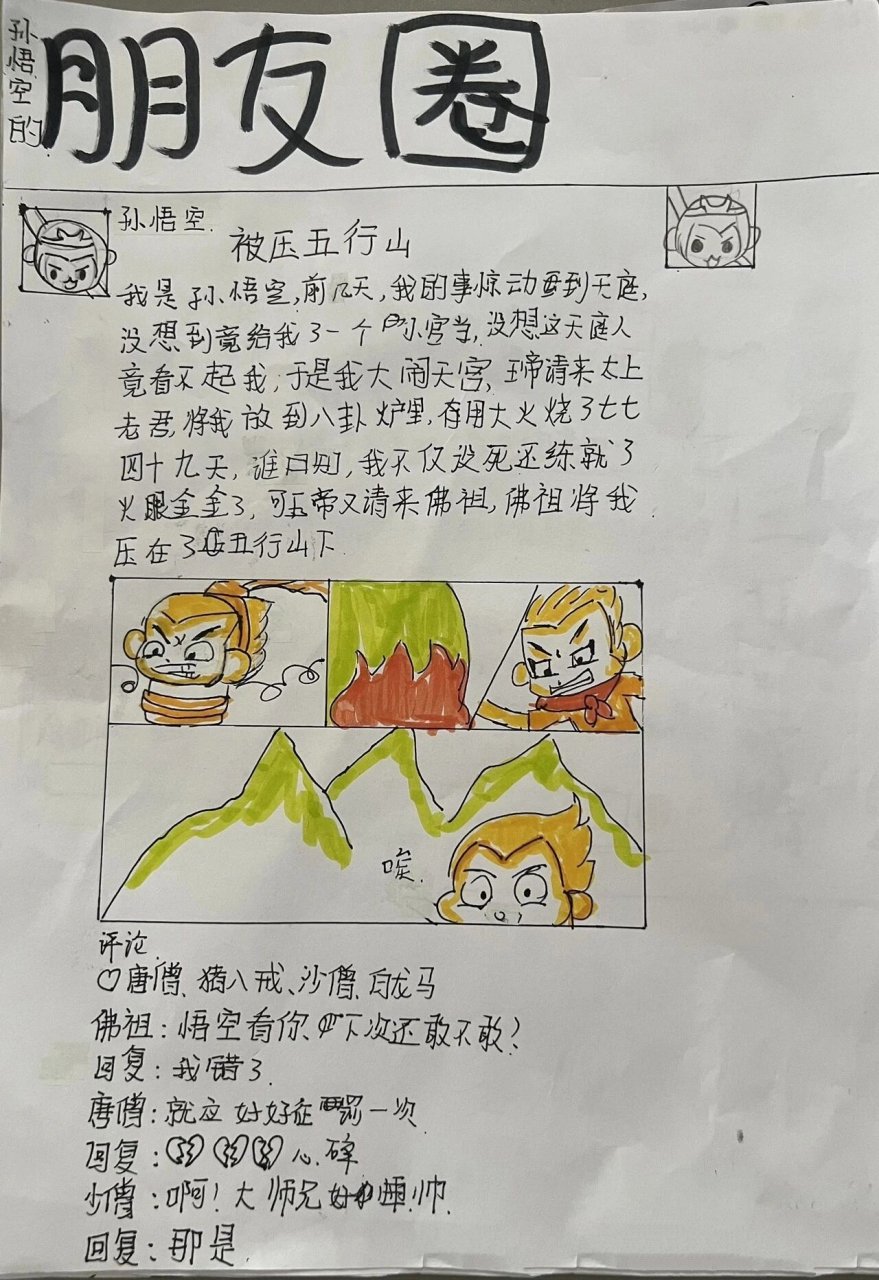 孙悟空的
朋友圈
孙悟空.
被压五行山
我是孙悟空,前几天,我的事惊动到天庭,
没想到竟给我了一个小官当,没想这天庭人
竟看不起我,于是我大闹天宫,玉帝请来太上
老君,将我放到八卦炉里,存用大火烧了七七
四十九天,谁曰知,我不仅没死还练就了
火眼金金了,可玉帝又请来佛祖,佛祖将我
压在了五行山下
唉.
评论.
♡唐僧、猪八戒、沙僧、白龙马
佛祖:悟空看你、下次还敢不敢?
回复:我错了.
唐僧:就应好好在罚一次.
回复:💔💔💔心碎
少僧:啊!大师兄好帅.
回复:那是.